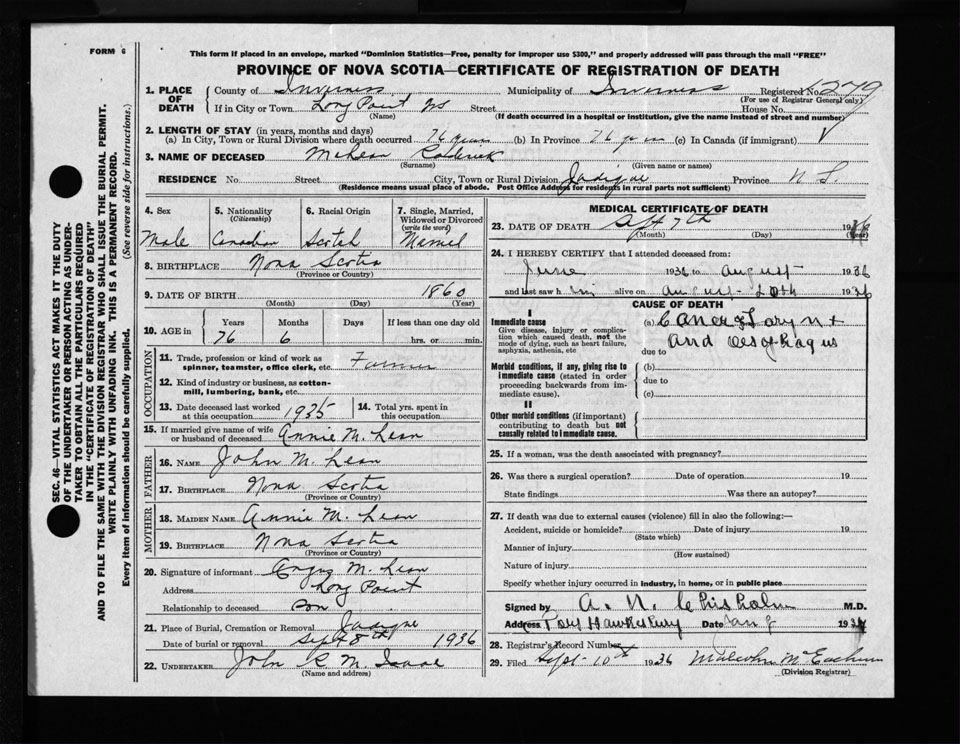 FORM 6
This form if placed in an envelope, marked "Dominion Statistics—Free, penalty for improper use $300," and properly addressed will pass through the mail "FREE"
PROVINCE OF NOVA SCOTIA—CERTIFICATE OF REGISTRATION OF DEATH
SEC. 46—VITAL STATISTICS ACT MAKES IT THE DUTY
OF THE UNDERTAKER OR PERSON ACTING AS UNDER-
TAKER TO OBTAIN ALL THE PARTICULARS REQUIRED
IN THE "CERTIFICATE OF REGISTRATION OF DEATH"
AND TO FILE THE SAME WITH THE DIVISION REGISTRAR WHO SHALL ISSUE THE BURIAL PERMIT.
WRITE PLAINLY WITH UNFADING INK. THIS IS A PERMANENT RECORD.
Every item of information should be carefully supplied. (See reverse side for instructions.)
1. PLACE OF DEATH
County of Inverness Municipality of Inverness Registered No. 1279
(For use of Registrar General only)
If in City or Town Long Point NS Street House No.
(Name) (If death occurred in a hospital or institution, give the name instead of street and number)
2. LENGTH OF STAY (in years, months and days)
(a) In City, Town or Rural Division where death occurred 76 years (b) In Province 76 years (c) In Canada (if immigrant)
3. NAME OF DECEASED McLean Roderick
(Surname) (Given name or names)
RESIDENCE No. Street City, Town or Rural Division Judique Province N S.
(Residence means usual place of abode. Post Office Address for residents in rural parts not sufficient)
4. Sex Male
5. Nationality (Citizenship) Canadian
6. Racial Origin Scotch
7. Single, Married, Widowed or Divorced (write the word) Married
8. BIRTHPLACE Nova Scotia
(Province or Country)
9. DATE OF BIRTH 1860
(Month) (Day) (Year)
10. AGE in Years Months Days If less than one day old
76 6 hrs. or min.
OCCUPATION
11. Trade, profession or kind of work as spinner, teamster, office clerk, etc. Farmer
12. Kind of industry or business, as cotton-mill, lumbering, bank, etc.
13. Date deceased last worked at this occupation 1935
14. Total yrs. spent in this occupation
15. If married give name of wife or husband of deceased Annie McLean
FATHER
16. NAME John McLean
17. BIRTHPLACE Nova Scotia
(Province or Country)
MOTHER
18. MAIDEN NAME Annie McLean
19. BIRTHPLACE Nova Scotia
(Province or Country)
20. Signature of informant Angus McLean
Address Long Point
Relationship to deceased son
21. Place of Burial, Cremation or Removal Judique
Date of burial or removal Sept 8th 1936
22. UNDERTAKER John R McIsaac
(Name and address)
MEDICAL CERTIFICATE OF DEATH
23. DATE OF DEATH Sept 7th 1936
(Month) (Day) (Year)
24. I HEREBY CERTIFY that I attended deceased from:
June 1936 to August 1936
and last saw him alive on August 20th 1936
CAUSE OF DEATH
I
Immediate cause
Give disease, injury or complication which caused death, not the mode of dying, such as heart failure, asphyxia, asthenia, etc
(a) Cancer of Larynx
and Oesophagus
due to
Morbid conditions, if any, giving rise to immediate cause (stated in order proceeding backwards from immediate cause).
(b)
due to
(c)
II
Other morbid conditions (if important) contributing to death but not causally related to immediate cause.
25. If a woman, was the death associated with pregnancy?
26. Was there a surgical operation? Date of operation 19
State findings Was there an autopsy?
27. If death was due to external causes (violence) fill in also the following:—
Accident, suicide or homicide? Date of injury 19
(State which)
Manner of injury
(How sustained)
Nature of injury
Specify whether injury occurred in industry, in home, or in public place
Signed by A. N. Chisholm M.D.
Address Port Hawkesbury Date Jan 193
28. Registrar's Record Number
29. Filed Sept 10th 1936 Malcolm McEachern
(Division Registrar)